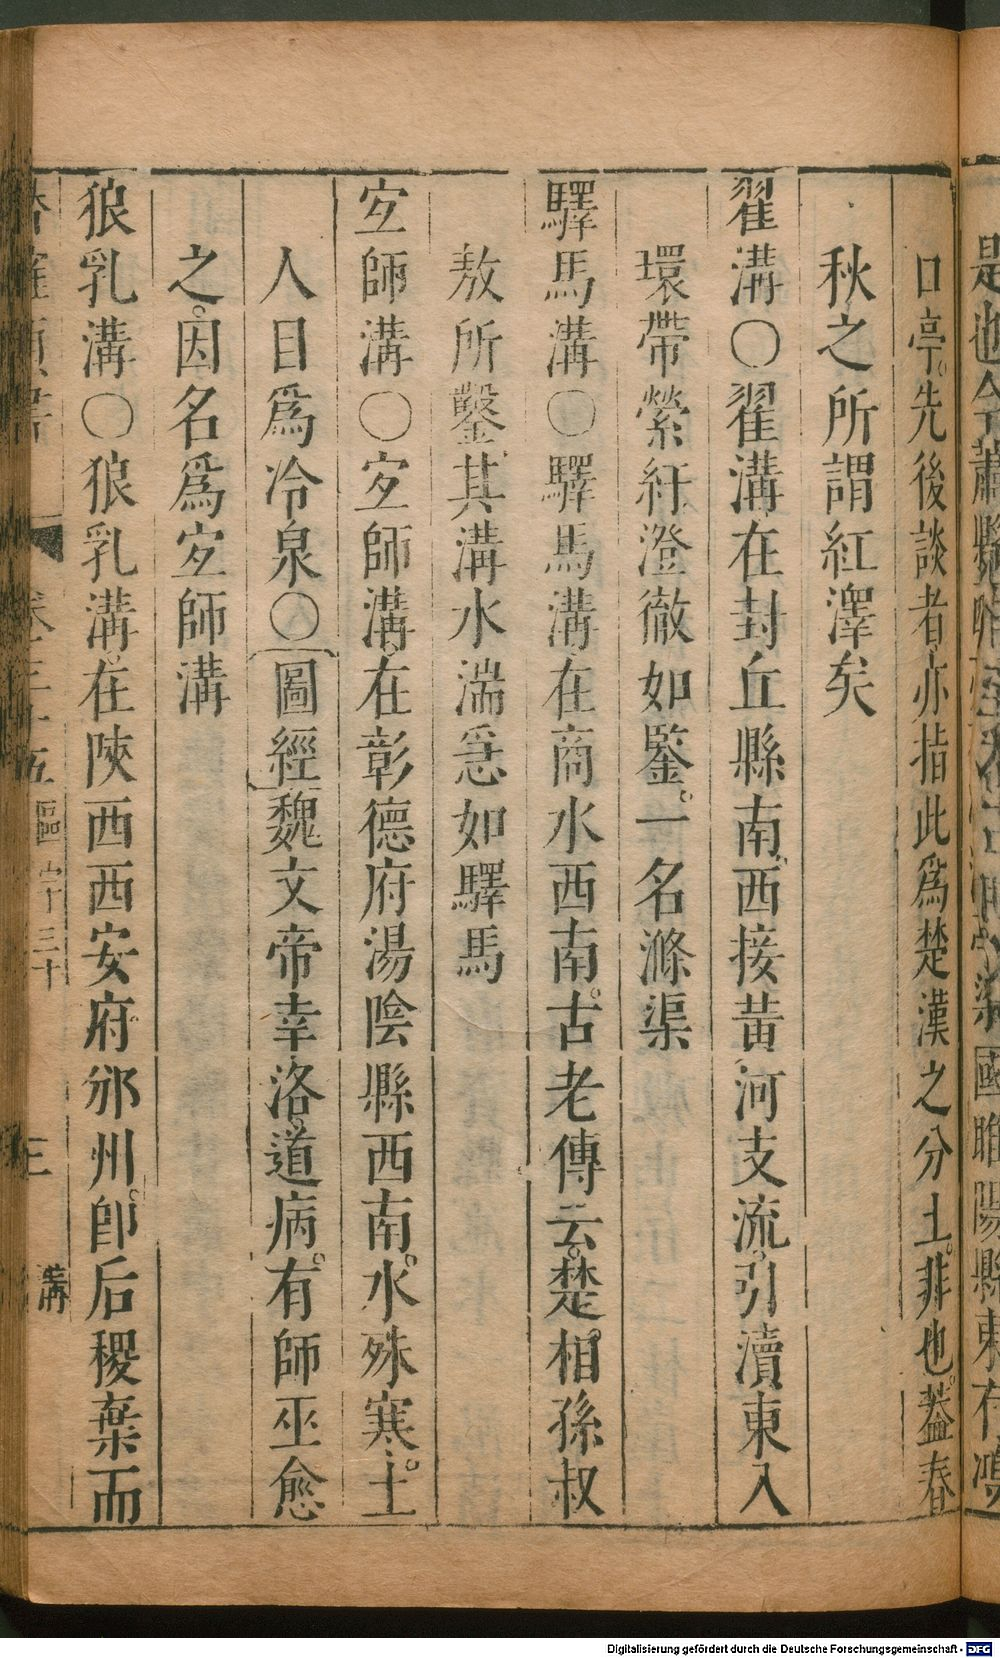 口亭先後談者亦指此爲楚漢之分土非也蓋春
秋之所謂紅澤矣
翟溝○翟溝在封丘縣南西接黄河支流引瀆東入
環帶縈紆澄徹如鑒一名滌渠
驛馬溝○驛馬溝在商水西南古老傳云楚相孫叔
敖所鑿其溝水湍急如驛馬
宐師溝○宐師溝在彰德府湯陰縣西南水殊寒土
人目爲冷泉○圖經魏文帝幸洛道病有師巫愈
之因名爲宐師溝
狼乳溝○狼乳溝在陝西西安府邠州卽后稷棄而
溝
Digitalisierung gefördert durch die Deutsche Forschungsgemeinschaft - DFG